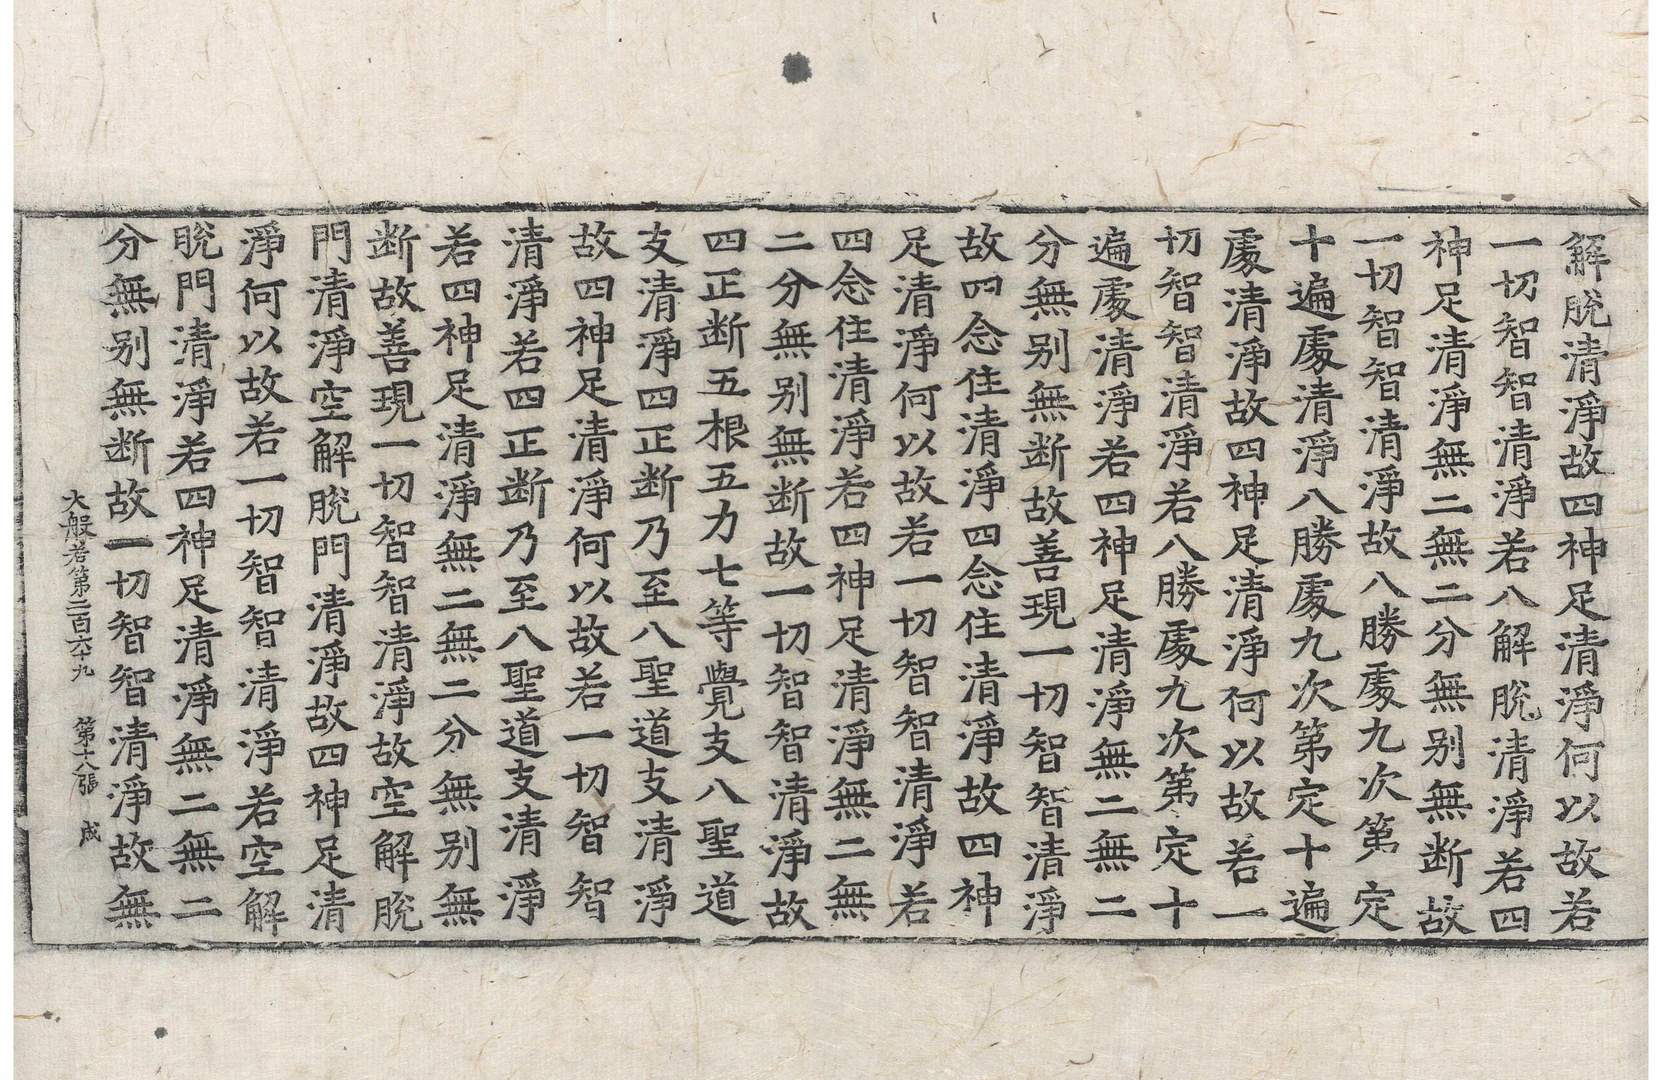 解脫清淨故四神足清淨何以故若
一切智智清淨若八解脫清淨若四
神足清淨無二無二分無别無断故
一切智智清淨故八勝處九次第定
十遍處清淨八勝處九次第定十遍
處清淨故四神足清淨何以故若一
切智智清淨若八勝處九次第定十
遍處清淨若四神足清淨無二無二
分無别無断故善現一切智智清淨
故四念住清淨四念住清淨故四神
足清淨何以故若一切智智清淨若
四念住清淨若四神足清淨無二無
二分無别無断故一切智智清淨故
四正断五根五力七等覺支八聖道
支清淨四正断乃至八聖道支清淨
故四神足清淨何以故若一切智智
清淨若四正断乃至八聖道支清淨
若四神足清淨無二無二分無别無
断故善現一切智智清淨故空解脫
門清淨空解脫門清淨故四神足清
淨何以故若一切智智清淨若空解
脫門清淨若四神足清淨無二無二
分無别無断故一切智智清淨故無
大般若第二百六十九 第十八張 成